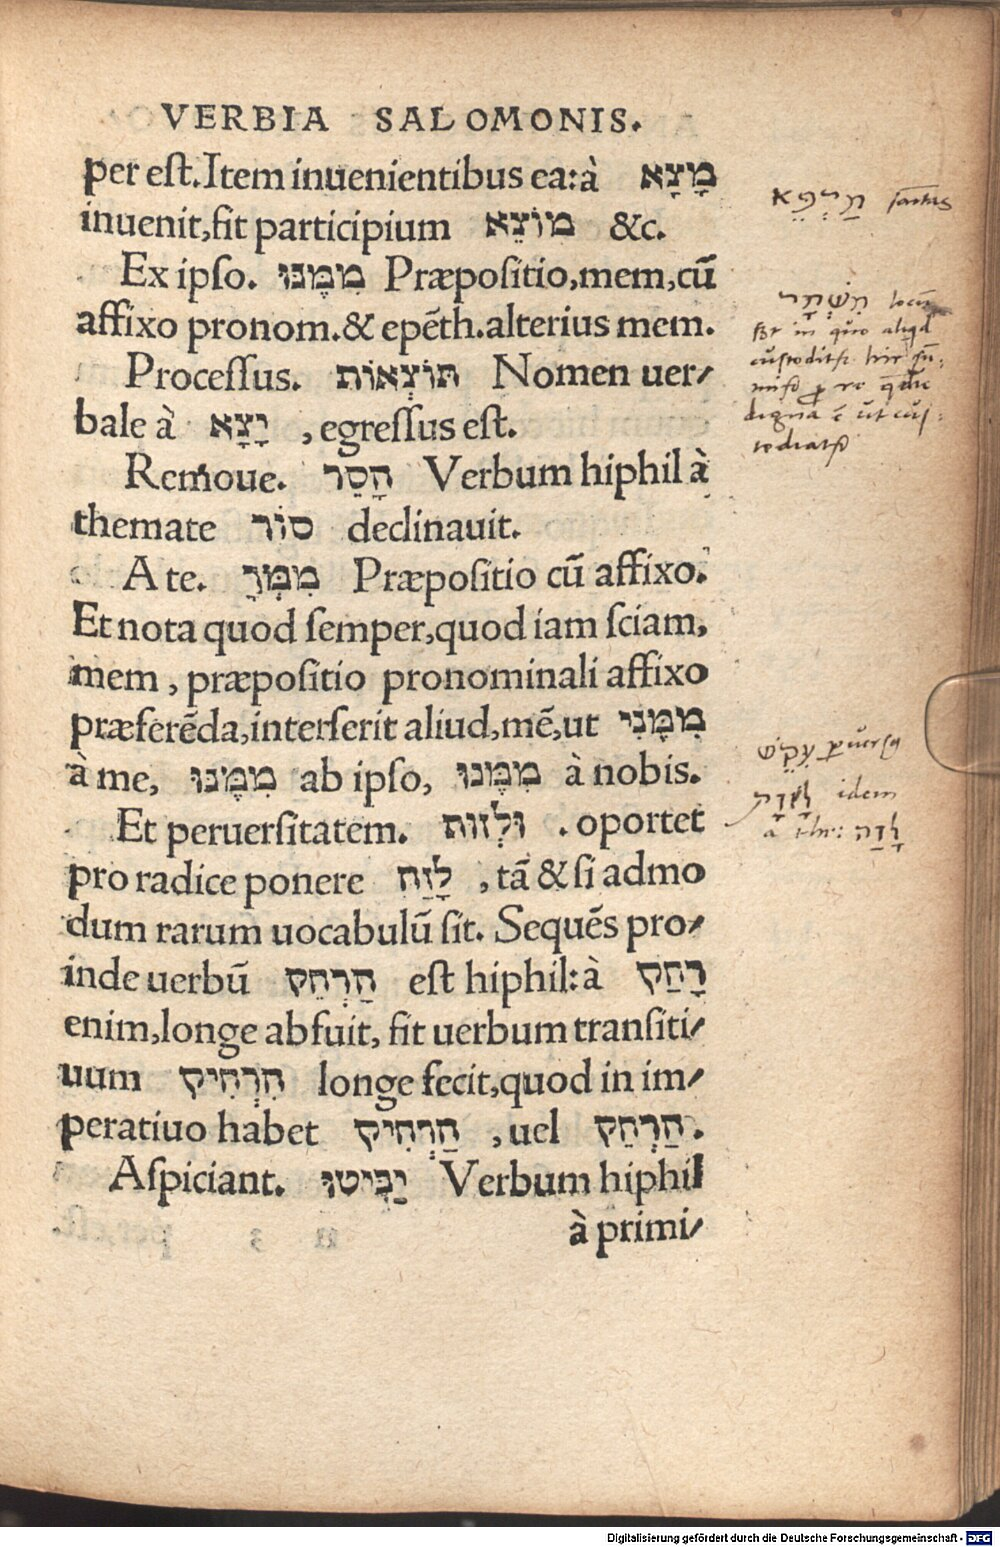 VERBIA SALOMONIS.
per eſt. Item inuenientibus ea: à מָצָא
inuenit, fit participium מוֹצֵא &c.
Ex ipſo. מִמֶּנּוּ Præpoſitio, mem, cū
affixo pronom. & epēth. alterius mem.
Proceſſus. תּוֹצְאוֹת Nomen uer/
bale à יָצָא , egreſſus eſt.
Remoue. הָסֵר Verbum hiphil à
themate סוֹר declinauit.
A te. מִמְּךָ Præpoſitio cū affixo.
Et nota quod ſemper, quod iam ſciam,
mem, præpoſitio pronominali affixo
præferēda, interſerit aliud, mē, ut מִמֶּנִּי
à me, מִמֶּנּוּ ab ipſo, מִמֶּנּוּ à nobis.
Et peruerſitatem. וּלְזוּת . oportet
pro radice ponere לָזַח , tā & ſi admo
dum rarum uocabulū ſit. Sequēs pro/
inde uerbū הַרְחֵק eſt hiphil: à רָחַק
enim, longe abfuit, fit uerbum tranſiti/
uum הִרְחִיק longe fecit, quod in im/
peratiuo habet הַרְחִיק , uel הַרְחֵק.
Aſpiciant. יַבִּיטוּ Verbum hiphil
à primi/
idem
Digitalisierung gefördert durch die Deutsche Forschungsgemeinschaft - DFG